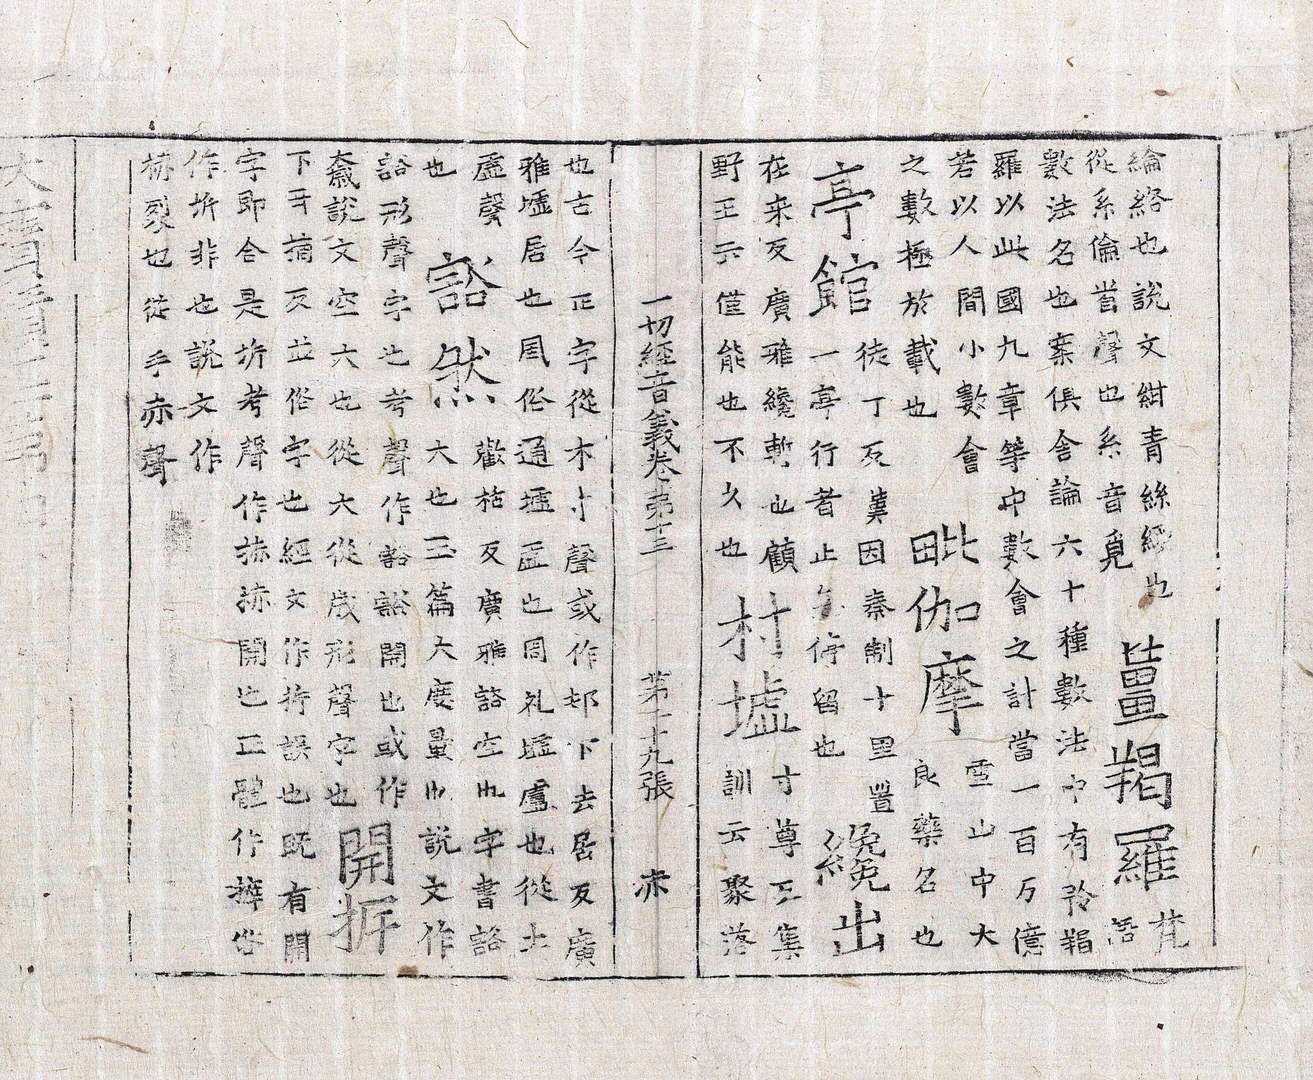 綸絡也說文紺青絲綬也
從糸侖嘗聲也糸音覓
薑羯羅
梵
語
數法名也案俱舍論六十種數法中有矜羯
羅以此國九章等中數會之計當一百万億
若以人間小數會
之數極於載也
毗伽摩
雪山中大
良藥名也
亭館
徒丁反漢因秦制十里置
一亭行者止 停留也
纔出
在来反廣雅纔暫也顧
野王云僅能也不久也
村墟
寸尊反集
訓云聚落
一切經音義卷第十三 第二十九張 赤
也古今正字從木寸聲或作邨下去居反廣
雅墟居也風俗通墟虛也周礼墟廬也從土
虛聲
也
豁然
歡栝反廣雅豁空也字書豁
大也玉篇大度量也說文作
豁形聲字也考聲作豁豁開也或作
奯說文空大也從大從歲形聲字也
開拆
下耳摘反並俗字也經文作拆誤也既有開
字即合是坼考聲作捇捇開也正體作𢳎俗
作坼非也說文作
捇裂也從手赤聲